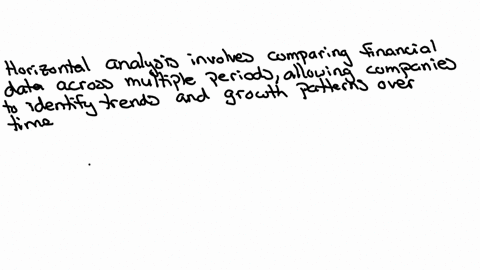 Horizontal analysis involves comparing financial
data across multiple periods, allowing companies
to identify trends and growth patterns over
time